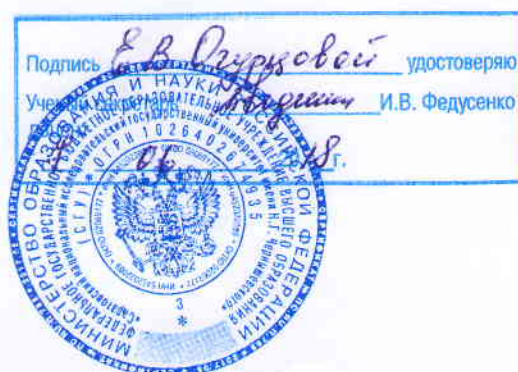 Подпись Е.В. Огурцовой удостоверяю
Ученый секретарь И.В. Федусенко
7 06 18 г.
МИНИСТЕРСТВО ОБРАЗОВАНИЯ И НАУКИ РОССИЙСКОЙ ФЕДЕРАЦИИ
ФЕДЕРАЛЬНОЕ ГОСУДАРСТВЕННОЕ БЮДЖЕТНОЕ ОБРАЗОВАТЕЛЬНОЕ УЧРЕЖДЕНИЕ ВЫСШЕГО ОБРАЗОВАНИЯ
«Саратовский национальный исследовательский государственный университет имени Н.Г. Чернышевского»
(СГУ) * ОГРН 1026402674935
3
*